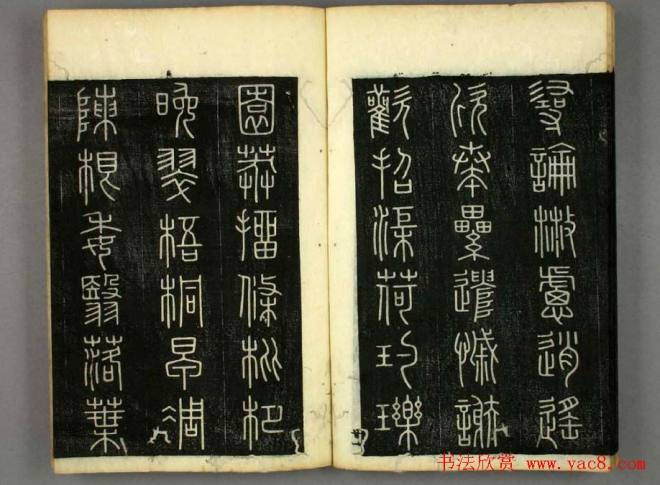 尋論散慮逍遙
欣奏累遣慼謝
歡招渠荷玓瓅
園莽抽條枇杷
晚翠梧桐早凋
陳根委翳落葉
书法欣赏 www.yac8.com